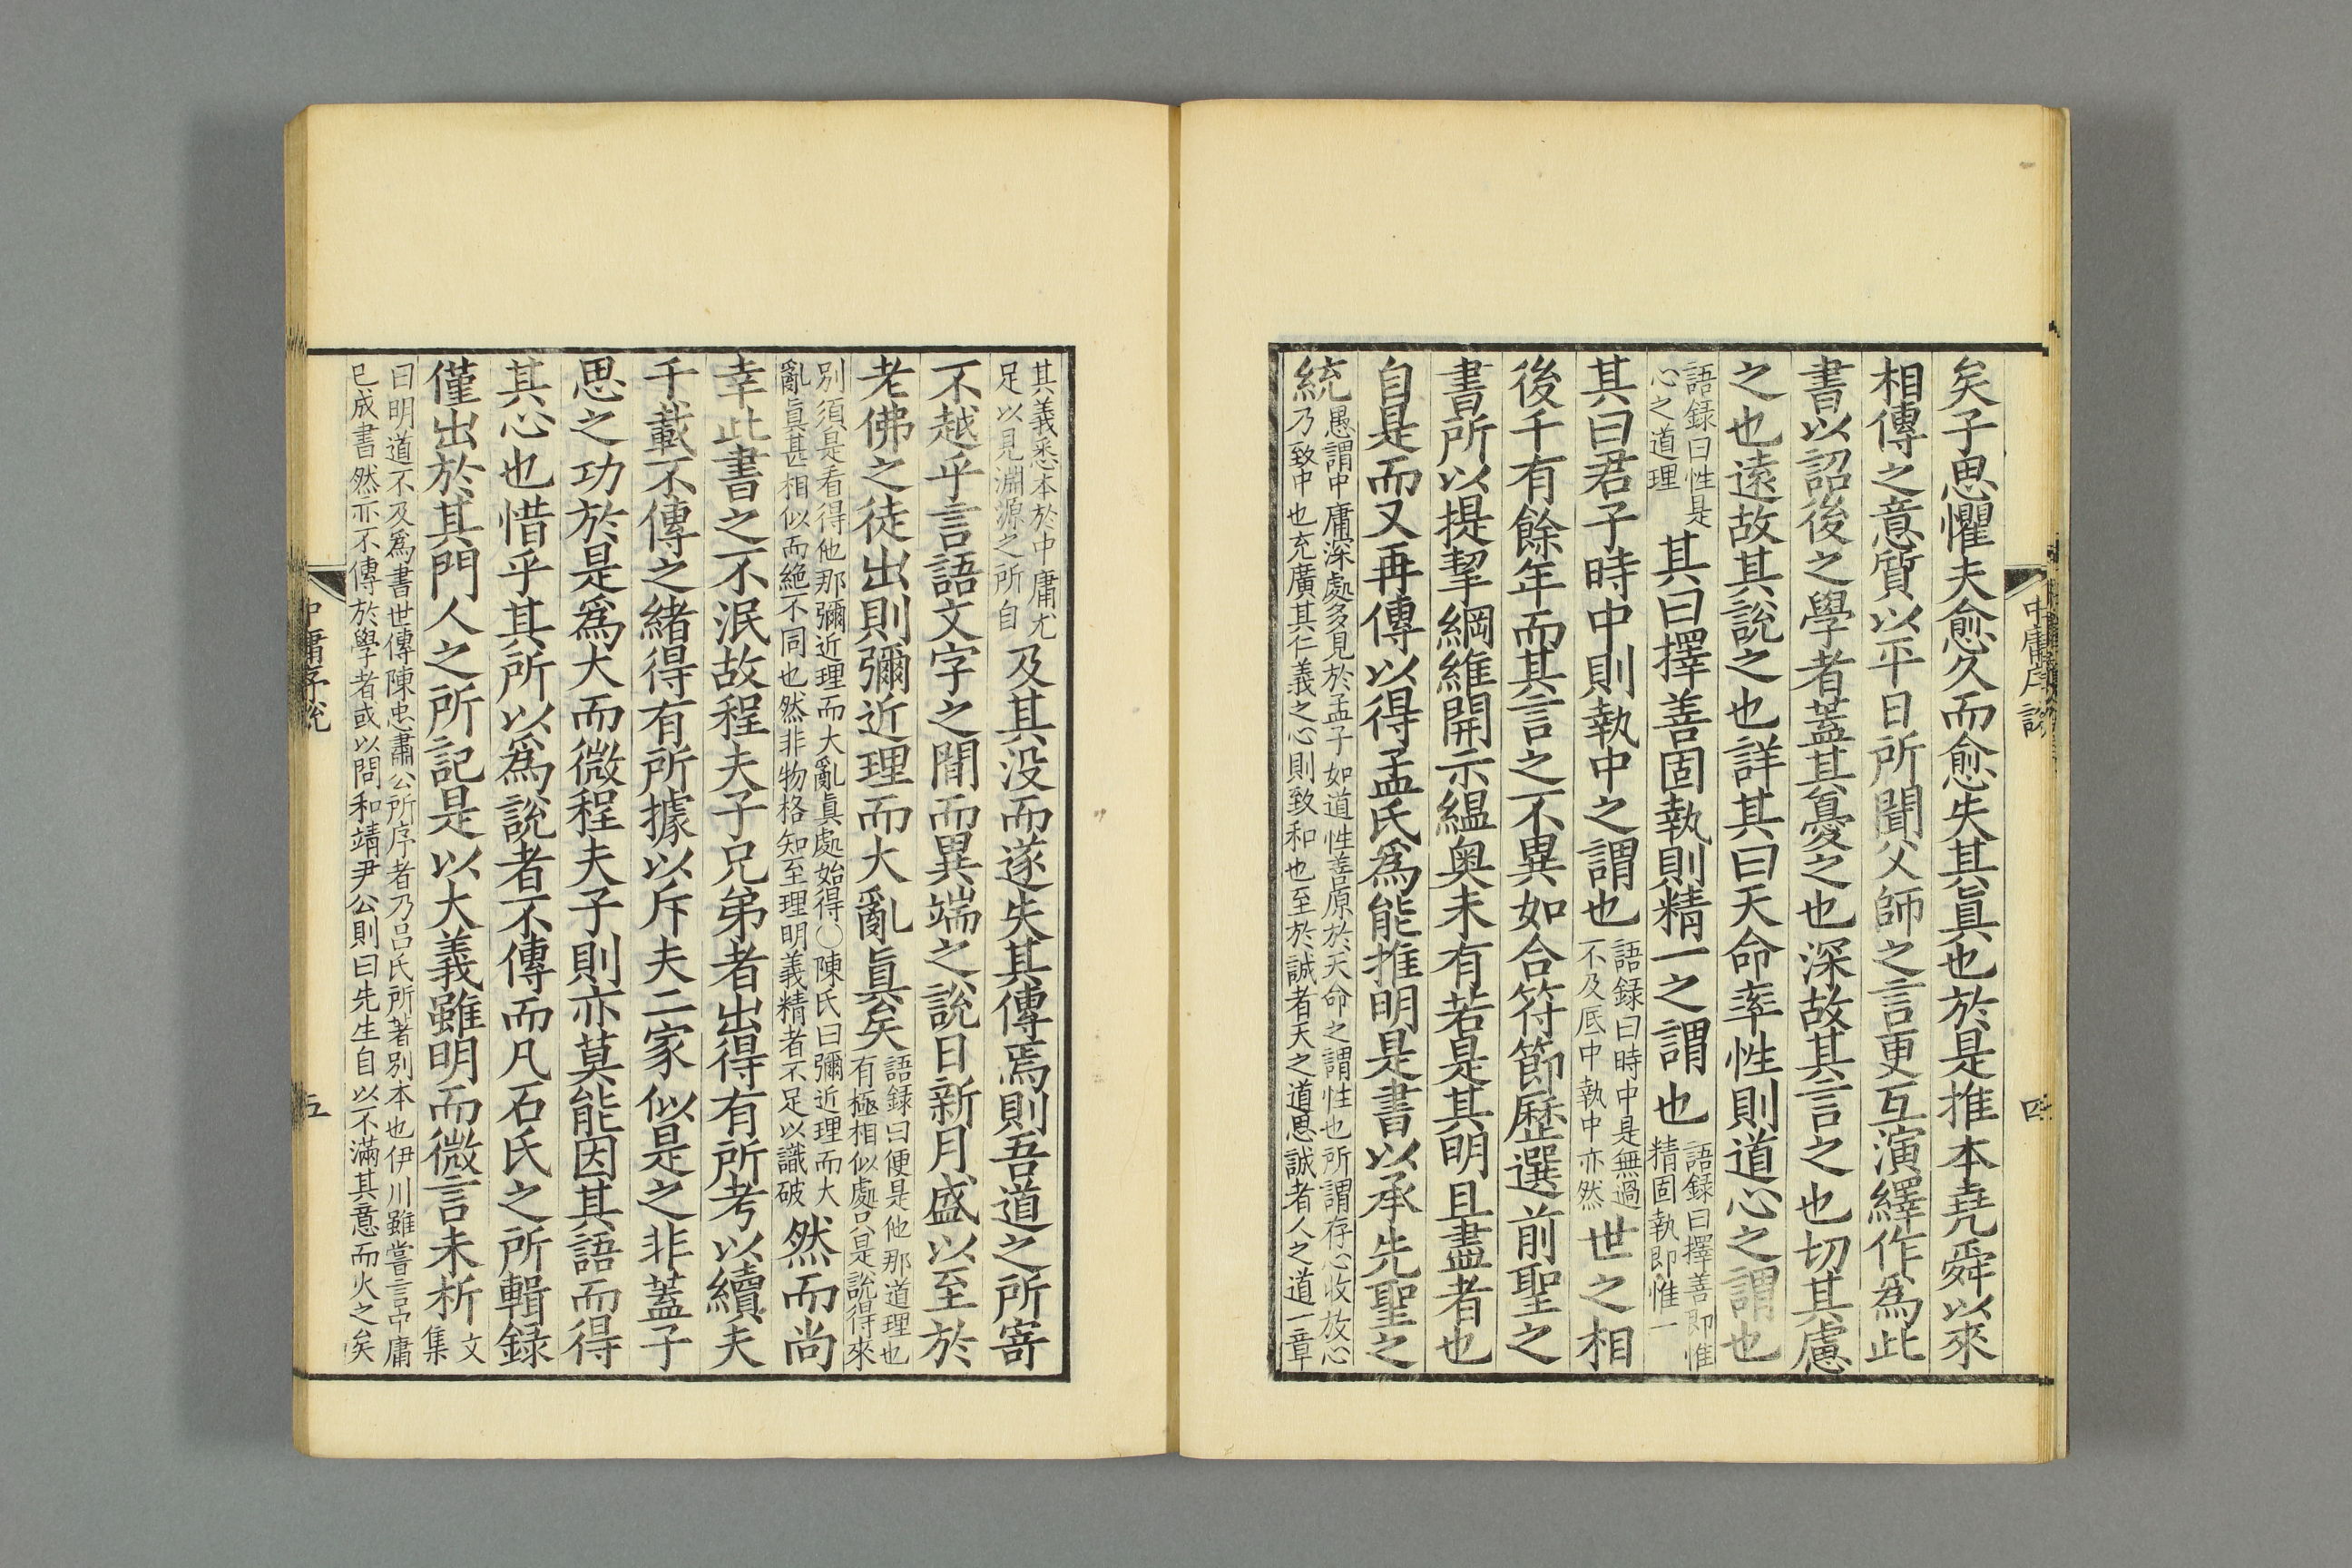 矣子思懼夫愈久而愈失其眞也於是推本堯舜以來
相傳之意質以平日所聞父師之言更互演繹作爲此
書以詔後之學者蓋其憂之也深故其言之也切其慮
之也遠故其說之也詳其曰天命率性則道心之謂也
語録曰性是
心之道理
其曰擇善固執則精一之謂也
語録曰擇善即惟
精固執即惟一
其曰君子時中則執中之謂也
語録曰時中是無過
不及底中執中亦然
世之相
後千有餘年而其言之不異如合符節歷選前聖之
書所以提挈綱維開示縕奥未有若是其明且盡者也
自是而又再傳以得孟氏爲能推明是書以承先聖之
統
愚謂中庸深處多見於孟子如道性善原於天命之謂性也所謂存心收放心
乃致中也充廣其仁義之心則致和也至於誠者天之道思誠者人之道一章
中庸序說
四
其義悉本於中庸尤
足以見淵源之所自
及其没而遂失其傳焉則吾道之所寄
不越乎言語文字之閒而異端之說日新月盛以至於
老佛之徒出則彌近理而大亂眞矣
語録曰便是他那道理也
有極相似處只是說得來
別須是看得他那彌近理而大亂眞處始得○陳氏曰彌近理而大
亂眞甚相似而絶不同也然非物格知至理明義精者不足以識破
然而尚
幸此書之不泯故程夫子兄弟者出得有所考以續夫
千載不傳之緒得有所據以斥夫二家似是之非蓋子
思之功於是爲大而微程夫子則亦莫能因其語而得
其心也惜乎其所以爲說者不傳而凡石氏之所輯録
僅出於其門人之所記是以大義雖明而微言未析
文
集
曰明道不及爲書世傳陳忠肅公所序者乃吕氏所著別本也伊川雖嘗言中庸
已成書然亦不傳於學者或以問和靖尹公則曰先生自以不滿其意而火之矣
中庸序說
五